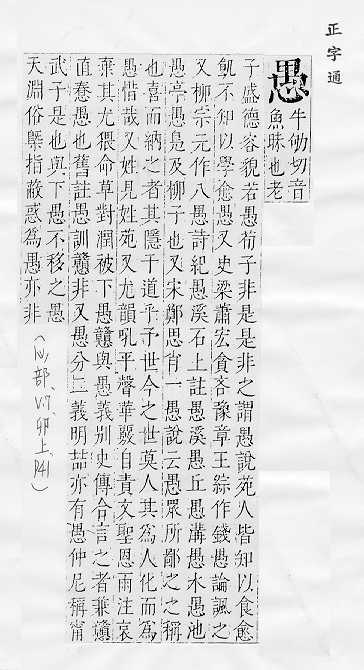 正字通
愚
牛劬切音
魚昧也老
子盛德容貌若愚荀子非是是非之謂愚說苑人皆知以食愈
飢不知以學愈愚又史梁蕭宏貪吝豫章王綜作錢愚論諷之
又柳宗元作八愚詩紀愚溪石上註愚溪愚丘愚溝愚木愚池
愚亭愚島及柳子也又宋鄭思肖一愚說云愚眾所鄙之之稱
也喜而納之者其隱于道乎予世今之世莫人其為人化而為
愚惜哉又姓見姓苑又尤韻吼平聲華覈自責文聖恩雨注哀
棄其尤猥命草對潤被下愚戇與愚義別史傳合言之者兼
惷愚也舊註愚訓戇非又愚分二義明喆亦有愚仲尼稱甯
武子是也與下愚不移之愚
天淵俗槩指蔽惑為愚亦非
(心部、V.7、卯上、P41)